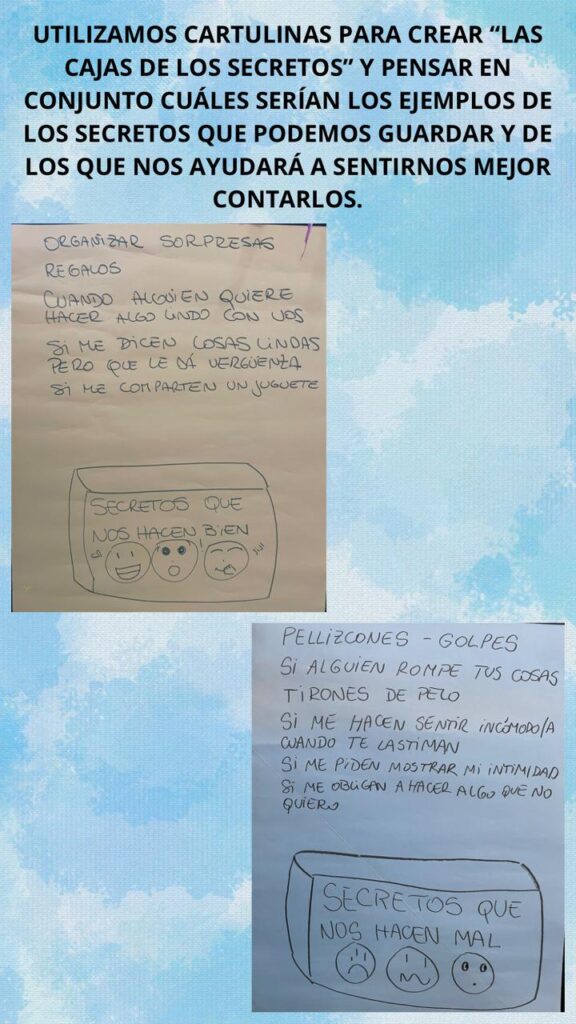 UTILIZAMOS CARTULINAS PARA CREAR “LAS
CAJAS DE LOS SECRETOS” Y PENSAR EN
CONJUNTO CUÁLES SERÍAN LOS EJEMPLOS DE
LOS SECRETOS QUE PODEMOS GUARDAR Y DE
LOS QUE NOS AYUDARÁ A SENTIRNOS MEJOR
CONTARLOS.
ORGANIZAR SORPRESAS
REGALOS
CUANDO ALGUIEN QUIERE
HACER ALGO LINDO CON VOS
SI ME DICEN COSAS LINDAS
PERO QUE LE DÁ VERGÜENZA
SI ME COMPARTEN UN JUGUETE
SECRETOS QUE
NOS HACEN BIEN
PELLIZCONES - GOLPES
SI ALGUIEN ROMPE TUS COSAS
TIRONES DE PELO
SI ME HACEN SENTIR INCÓMODO/A
CUANDO TE LASTIMAN
SI ME PIDEN MOSTRAR MI INTIMIDAD
SI ME OBLIGAN A HACER ALGO QUE NO
QUIERO
SECRETOS QUE
NOS HACEN MAL